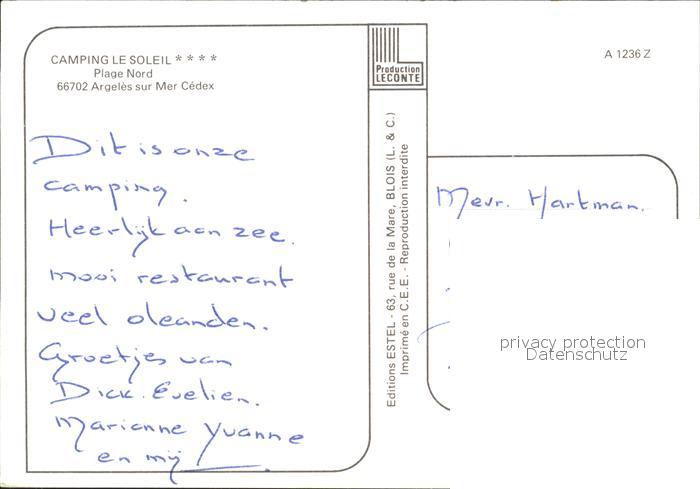 CAMPING LE SOLEIL * * * *
Plage Nord
66702 Argelès sur Mer Cédex
Dit is onze
camping.
Heerlijk aan zee.
mooi restaurant
veel oleanden.
Groetjes van
Dick. Evelien.
Marianne Yvanne
en mij
Production
LECONTE
Editions ESTEL - 63, rue de la Mare, BLOIS (L. & C.)
Imprimé en C.E.E. - Reproduction interdite
A 1236 Z
Mevr. Hartman.
privacy protection
Datenschutz